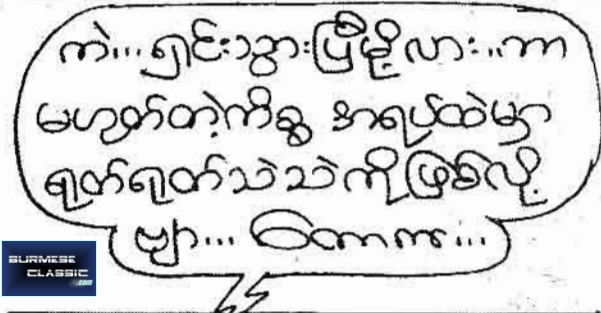 ကဲ...ရှင်းသွားပြီမို့လား..ဘာ
မဟုတ်တဲ့ကိစ္စ အရပ်ထဲမှာ
ရုတ်ရုတ်သဲသဲကိုဖြစ်လို့
ဗျာ... ဝိတောက...
BURMESE
CLASSIC
.com